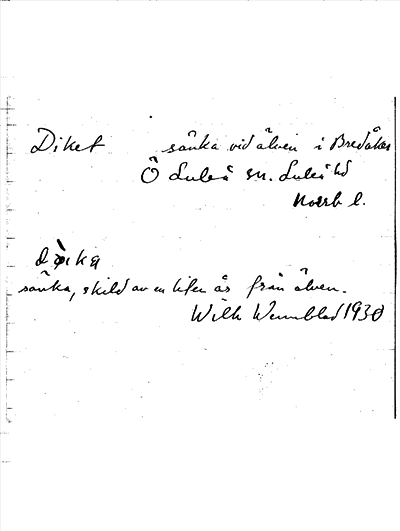 Diket sänka vid älven i Bredåker
Ö Luleå sn. Luleå hd
Norrb l.
sänka, skild av en liten ås från älven.
Wilh Wennblad 1930